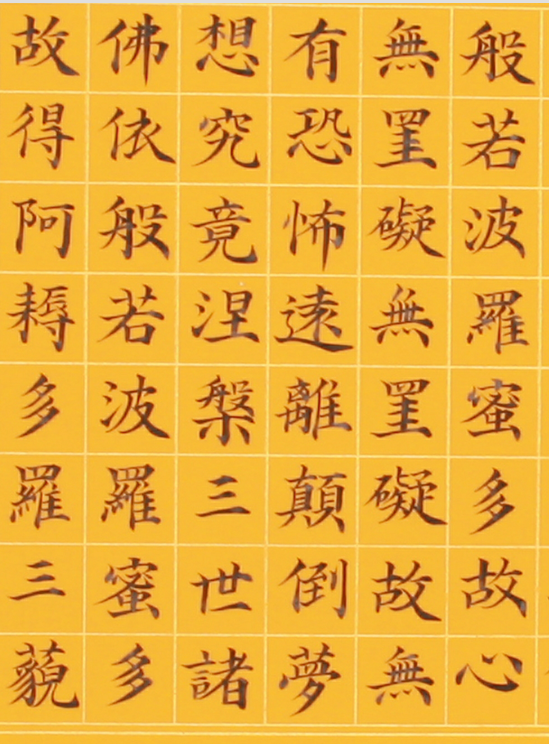 般若波羅蜜多故心
無罣礙無罣礙故無
有恐怖遠離顛倒夢
想究竟涅槃三世諸
佛依般若波羅蜜多
故得阿耨多羅三藐